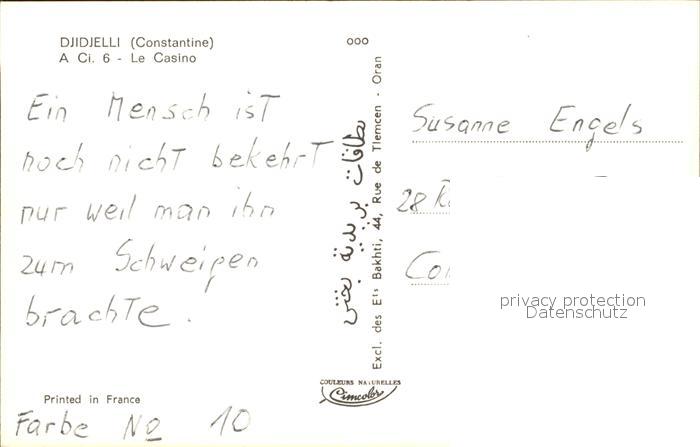 DJIDJELLI (Constantine)
A Ci. 6 - Le Casino
Ein Mensch ist
noch nicht bekehrt
nur weil man ihn
zum Schweigen
brachte.
Printed in France
Farbe No 10
ooo
بطاقات بريدية بخثي
Excl. des Ets Bakhti, 44, Rue de Tlemcen - Oran
COULEURS NATURELLES
Cimcolor
Susanne Engels
28
privacy protection
Datenschutz